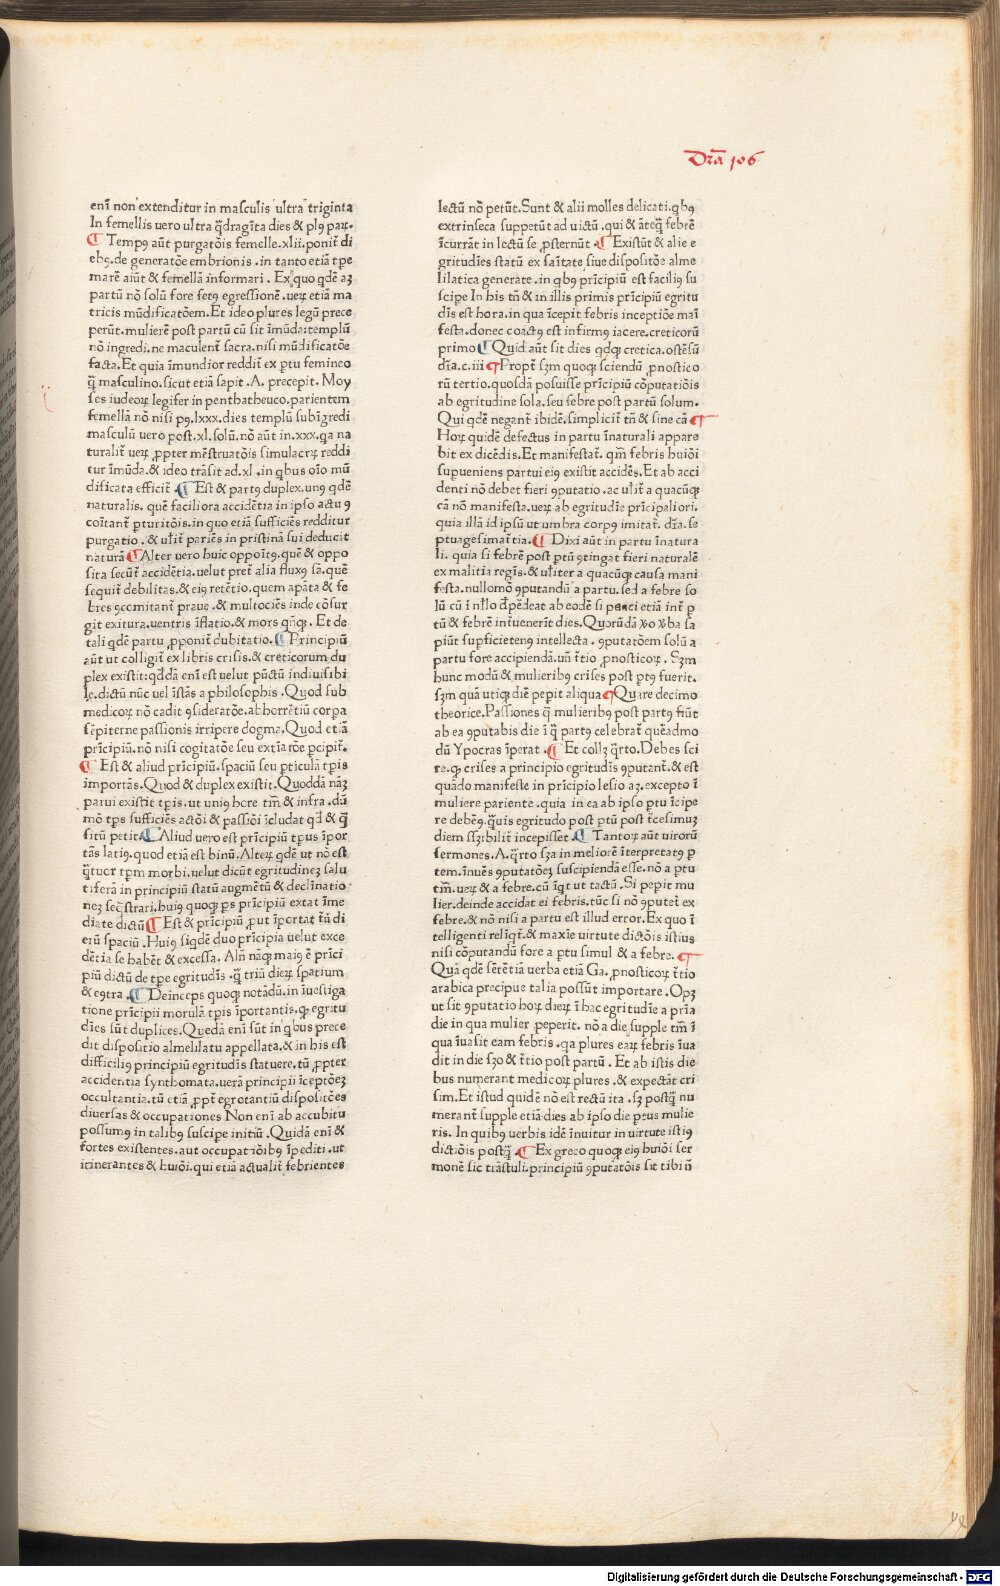 Dr̄a 106
enī non extenditur in masculis ultra triginta
In femellis vero ultra q̄dragīta dies & plꝯ paꝝ.
¶ Tempꝯ aūt purgatōis femelle.xlii.ponit̄ di
ebꝯ.de generatōe embrionis.in tanto etiā tꝑe
marē aiūt & femellā informari. Ex quo qdē aꝫ
partū nō solū fore setꝯ egressionē.ueꝝ etiā ma
tricis mūdificatōem.Et ideo plures legū prece
perūt.mulierē post partū cū sit īmūda:templū
nō ingredi.ne maculent̄ sacra.nisi mūdificatōe
facta.Et quia īmundior reddit̄ ex ptu femineo
q̄ masculino.sicut etiā sapit.A. precepit. Moy
ses iudeoꝝ legifer in penthatheuco.parientem
femellā nō nisi pꝯ.lxxx.dies templū subīgredi
masculū vero post.xl.solū.nō aūt in.xxx.qa na
turalit̄ ueꝝ ꝓpter mēstruatōis simulacrꝝ reddi
tur īmūda.& ideo trāsit ad.xl.in qbus oīo mū
dificata efficit̄ .¶ Est & partꝯ duplex.unꝯ qdē
naturalis. quē faciliora accidētia in ipso actu ꝯ
coītant̄ ꝑturitōis.in quo etiā sufficiēs redditur
purgatio . & ul̄it̄ pariēs in pristinā sui deducit
naturā ¶ Alter vero huic oppoītꝯ.quē & oppo
sita secūt̄ accidētia.velut pret̄ alia fluxꝯ sā.quē
sequit̄ debilitas.& eiꝯ retētio.quem apāta & fe
bres ꝯcomitant̄ praue . & multociēs inde cōsur
git exitura.uentris īflatio.& mors qn̄qꝫ . Et de
tali qdē partu ꝓponit̄ dubitatio. ¶ Principiū
aūt ut colligit̄ ex libris crisis.& creticorum du
plex existit:qddā enī est velut pūctū indiuisibi
le.dictū nūc vel īstās a philosophis . Quod sub
medicoꝝ nō cadit ꝯsideratōe.abhorrētiū corpa
sēpiterne passionis irripere dogma. Quod etiā
prīcipiū.nō nisi cogitatōe seu extīarōe ꝑcipit̄.
¶ Est & aliud prīcipiū.spaciū seu ꝑticulā tꝑis
īmportās. Quod & duplex existit. Quoddā nāꝫ
parui existit tꝑis.ut uniꝯ hore tm̄ & infra . dū
mō tꝑs sufficiēs actōi & passiōi īcludat qd & q̄
sitū petit ¶ Aliud vero est prīcipiū tꝑus īpor
tās latiꝯ.quod etiā est binū.Alteꝝ qdē ut nō est
q̄tuor tꝑm morbi.velut dicūt egritudineꝫ salu
tiferā in principiū statū augmētū & declīnatio
neꝫ seq̄strari.huiꝯ quoqꝫ ps prīcipiū extat īme
diate dictū ¶ Est & prīcipiū ꝓut īportat t̄ū di
erū spaciū . Huiꝯ siqdē duo prīcipia velut exce
dētia se habēt & excessa. Aln̄ nāqꝫ maiꝯ ē prīci
piū dictū de tꝑe egritudīs .q̄ triā dieꝝ spatium
& eꝯtra . ¶ Deinceps quoqꝫ notādū.in īuestiga
tione prīcipii morulā tꝑis īportantis.qꝫ egritu
dīes sūt duplices.Quedā enī sūt in qbus prece
dit dispositio almelilatu appellata.& in his est
difficiliꝯ principiū egritudīs statuere.tū ꝓpter
accidentia synthomata.uerā principii īceptōeꝫ
occultantia.tū etiā ꝓpt̄ egrotantiū dispositōes
diuersas & occupationes Non enī ab accubitu
possumꝯ in talibꝯ suscipe initiū . Quidā enī &
fortes existentes.aut occupatiōibꝯ īpediti.ut
itinerantes & huiōi.qui etiā actualit̄ febrientes
lectū nō petūt.Sunt & alii molles delicati.qbꝯ
extrinseca suppetūt ad uictū .qui & āteqꝫ febrē
īcurrāt in lectū se ꝓsternūt . ¶ Existūt & alie e
gritudīes statū ex saītate siue dispositōe alme
lilatica generate.in qbꝯ prīcipiū est faciliꝯ su
scipe In his tn̄ & in illis primis prīcipiū egritu
dīs est hora.in qua īcepit febris inceptiōe mai
festa.donec coactꝯ est infirmꝯ iacere.creticorū
primo ¶ Quid aūt sit dies qdqꝫ cretica.ostēsū
dr̄a.c.iii ¶ Propt̄ sꝫm quoqꝫ sciendū ꝓnostico
rū tertio.quosdā posuisse prīcipiū cōputatiōis
ab egritudine sola.seu febre post partū solum.
Qui qdē negant̄ ibidē.simplicit̄ tn̄ & sine cā ¶
Hoꝝ quidē defectus in partu īnaturali appare
bit ex dicēdis.Et manifestat̄. qm̄ febris huiōi
superueniens partui eiꝯ existit accidēs.Et ab acci
denti nō debet fieri ꝯputatio.ac ul̄it̄ a quacūqꝫ
cā nō manifesta.ueꝝ ab egritudīe prīcipaliori.
quia illā id ipsū ut umbra corpꝯ imitat̄. dr̄a.se
ptuagesimat̄ia. ¶ Dixi aūt in partu īnatura
li. quia si febrē post ptū ꝯtingat fieri naturalē
ex malitia regīs.& ul̄iter a quacūqꝫ causa mani
festa.nullomō ꝯputandū a partu.sed a febre so
lū cū ī nllo dꝑēdeat ab eodē si pauci etiā int̄ p
tū & febrē intuenerīt dies.Quorūdā ꝟo ꝟba sa
piūt supficietenꝯ intellecta . ꝯputatōem solū a
partu fore accipiendā.un̄ t̄tio ꝓnosticoꝝ. Sꝫm
hunc modū & mulieribꝯ crises post ptꝯ fuerit.
sꝫm quā utiqꝫ diē pepit aliqua ¶ Quare decimo
theorice.Passiones q̄ mulieribꝯ post partꝯ fiūt
ab ea ꝯputabis die ī q̄ partꝯ celebrat̄ quēadmo
dū Ypocras īperat . ¶ Et colꝫ q̄rto.Debes sci
re.qꝫ crises a principio egritudīs ꝯputant̄.& est
quādo manifeste in prīcipio lesio aꝫ.excepto ī
muliere pariente.quia in ea ab ipso ptu īcipe
re debēꝯ.q̄uis egritudo post ptū post t̄cesimuꝫ
diem sꝫꝫibilit̄ incepisset . ¶ Tantoꝝ aūt uirorū
sermones.A.q̄rto sꝫa in meliorē īterpretatꝯ p
tem.īnuēs ꝯputatōeꝫ suscipiendā esse.nō a ptu
tm̄.ueꝝ & a febre.cū īqt ut tactū. Si pepit mu
lier.deinde accidat ei febris.tūc si nō ꝯputet̄ ex
febre.& nō nisi a partu est illud error. Ex quo ī
telligenti relīqt̄.& maxīe virtute dictōis istius
nisi cōputandū fore a ptu simul & a febre. ¶
Quā qdē sētētiā uerba etiā Ga. ꝓnosticoꝝ t̄tio
arabica precipue talia possūt importare . Opꝫ
ut sit ꝯputatio hoꝝ dieꝝ ī hac egritudīe a prīa
die in qua mulier peperit. nō a die supple tm̄ ī
qua īuasit eam febris .qa plures eaꝝ febris īua
dit in die sꝫo & t̄tio post partū . Et ab istis die
bus numerant medicoꝝ plures .& expectāt cri
sim.Et istud quidē nō est rectū ita . sꝫ postqꝫ nu
merant̄ supple etiā dies ab ipso die ptus mulie
ris. In quibꝯ uerbis idē īnuitur in uirtute istiꝯ
dictōis postqꝫ . ¶ Ex greco quoqꝫ eiꝯ huiōi ser
monē sic trāstuli.principiū ꝯputatōis sit tibi n̄
Digitalisierung gefördert durch die Deutsche Forschungsgemeinschaft - DFG